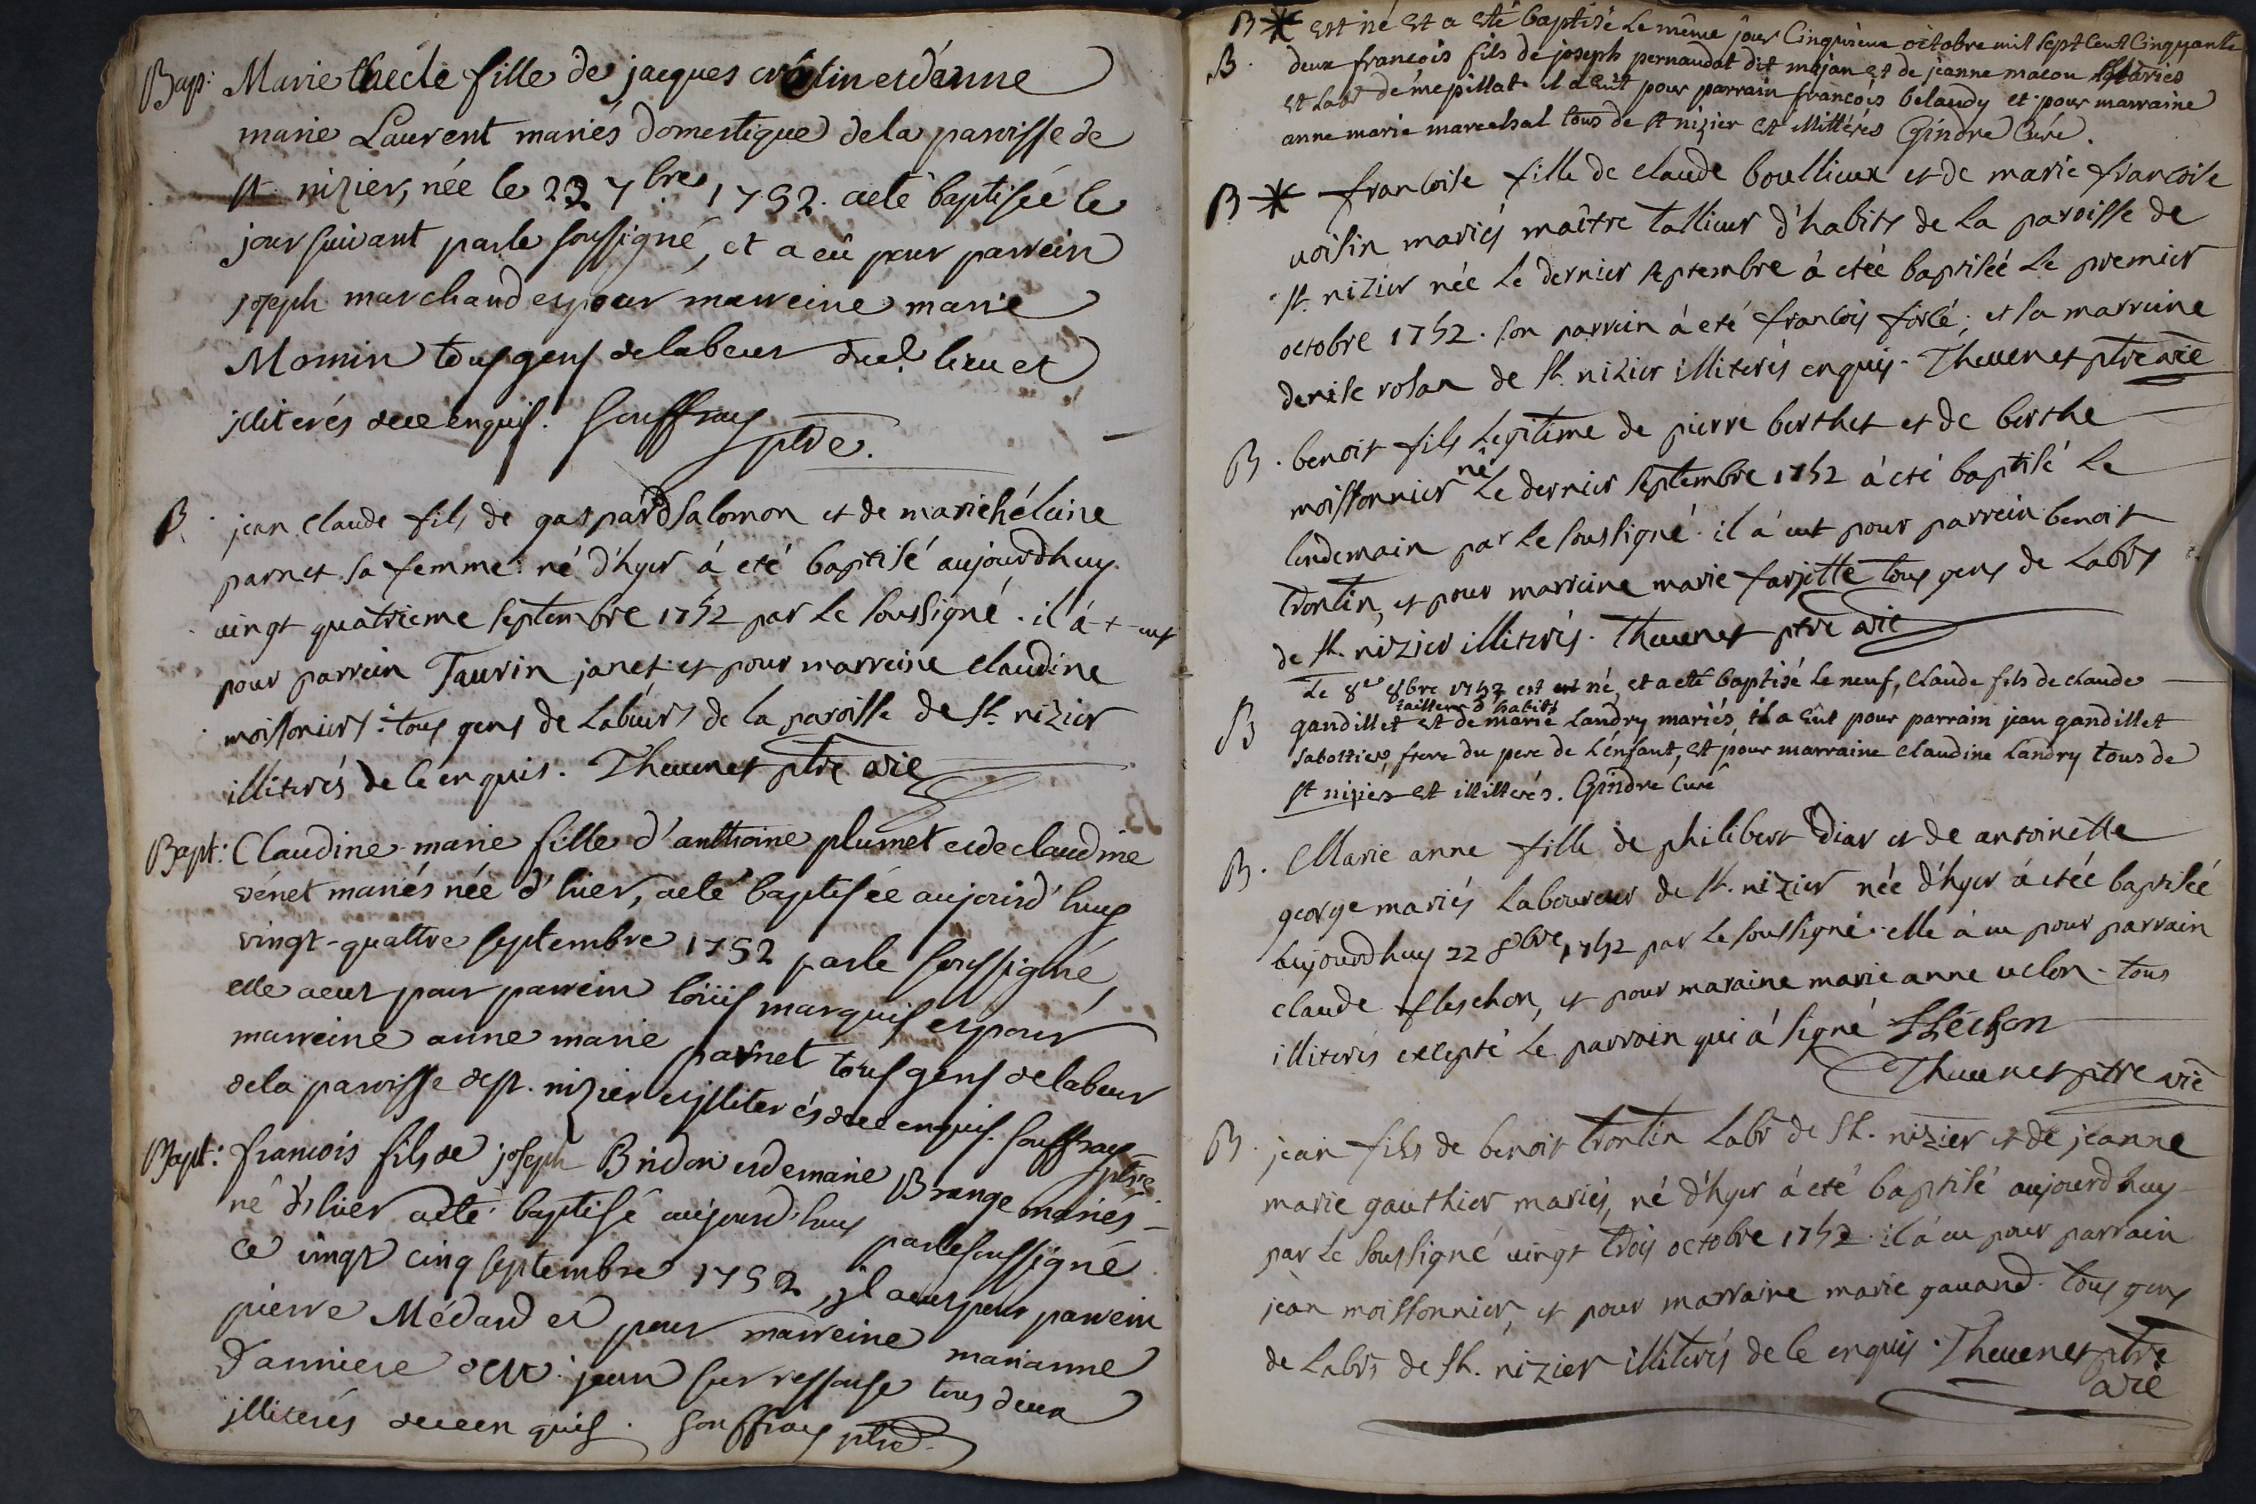 Bap: Marie thecle fille de jacques crotin et d'anne
marie Laurent mariés domestique de la paroisse de
st. nizier, née le 23 7bre 1752. a eté baptisée le
jour suivant par le soussigné, et a eû pour parrein
joseph marchand et pour marreine marie
Momin tous gens de labeur dud. lieu et
jlliterés de ce enquis. Souffray
ptre.
B. jean claude fils de gaspard salomon et de marie héleine
parnet sa femme né d'hyer á eté baptisé aujourdhuy
vingt quatrieme septembre 1752 par le soussigné. il á + eut
pour parrein Taurin janet et pour marreine claudine
moissonier: tous gens de labeur de la paroisse de st. nizier
illiterés de ce enquis. Thevenet ptre vic
Bapt: Claudine marie fille d'anthoine plumet et de claudine
vénet mariés née d'hier, a eté baptisée aujourd'huy
vingt-quattre septembre 1752 par le soussigné,
elle a eut pour parrein loüis marquis et pour
marreine anne marie parnet tous gens de labeur
de la paroisse de st. nizier et jlliterés de ce enquis. Souffray
ptre
Bapt: francois fils de joseph Bridon et de marie Brange mariés
né d'hier a eté baptisé aujourd'huy par le soussigné
ce vingt cinq septembre 1752, jl a eut pour parrein
pierre Médard et pour marreine marianne
danniere de st. jean sur ressouse tous deux
jlliterés de ce en quis. Souffray ptre
B * est né et a eté baptisé le même jour Cinquieme octobre mil sept Cent Cinquante
B. deux francois fils de joseph pernaudat dit majan et de jeanne macon mariés
et labr de mépillat il a eût pour parrain francois belaudy et pour marraine
anne marie marechal tous de st nizier et illittérés Gindre Curé.
B * francoise fille de claude boullieux et de marie francoise
voisin mariés maître tallieur d'habits de la paroisse de
st. nizier née le dernier septembre á etée baptiséé le premier
octobre 1752. son parrein á eté francois forcé; et sa marreine
denise rosan de st. nizier illiterés enquis. Thevenet ptre vic
B. benoit fils legitime de pierre berthet et de berthe
moissonnier né le dernier septembre 1752 á eté baptisé le
lendemain par le soussigné. il á eut pour parrein benoit
trontin, et pour marreine marie farjette tous gens de labrs
de st. nizier illiterés. Thevenet ptre vic
Le 8e 8bre 1752 est né et a eté baptisé le neuf, Claude fils de claude
tailleur d'habits
B gandillet et de marie Landry mariés il a eût pour parrain jean gandillet
sabottier, frere du pere de l'énfant, et pour marraine claudine Landry tous de
st nizier et illittérés. Gindre Curé
B. Marie anne fille de philibert Diar et de antoinette
george mariés laboureur de st. nizier née d'hyer á etée baptiséé
aujourdhuy 22 8bre, 1752 par le soussigné. elle á eu pour parrain
claude fleschon, et pour maraine marie anne velon. tous
illiterés excepté le parrain qui á signé fléchon
Thevenet ptre vic
B. jean fils de benoit trontin labr de st. nizier et de jeanne
marie gauthier mariés, né d'hyer á eté baptisé aujourdhuy
par le soussigné vingt trois octobre 1752. il á eu pour parrain
jean moissonnier, et pour marraine marie gavand. tous gens
de labrs de st. nizier illiterés de ce enquis. Thevenet ptre
vic